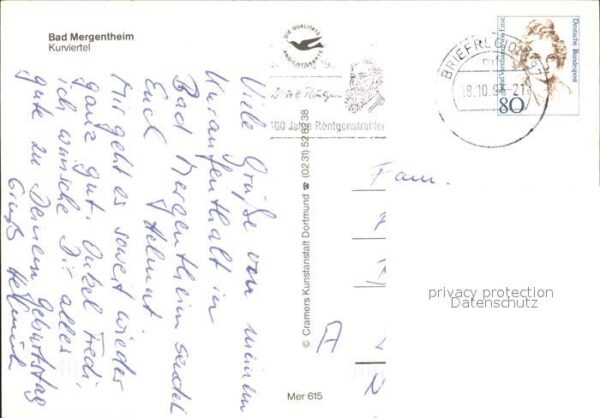 Bad Mergentheim
Kurviertel
DIE QUALITÄTS
ANSICHTSKARTE
100 Jahre Röntgenstrahlen
BRIEFREGION
18.10.95-21
Deutsche Bundespost
Rahel Varnhagen von Ense
80
Viele Grüße von meinem
Kuraufenthalt in
Bad Mergentheim sendet
Euch Helmut
Mir geht es soweit wieder
ganz gut. Onkel Fredi,
ich wünsche Dir alles
gute zu Deinem Geburtstag
Gruß Helmut
© Cramers Kunstanstalt Dortmund ☎ (02 31) 52 82 38
Mer 615
Fam.
A
privacy protection
Datenschutz